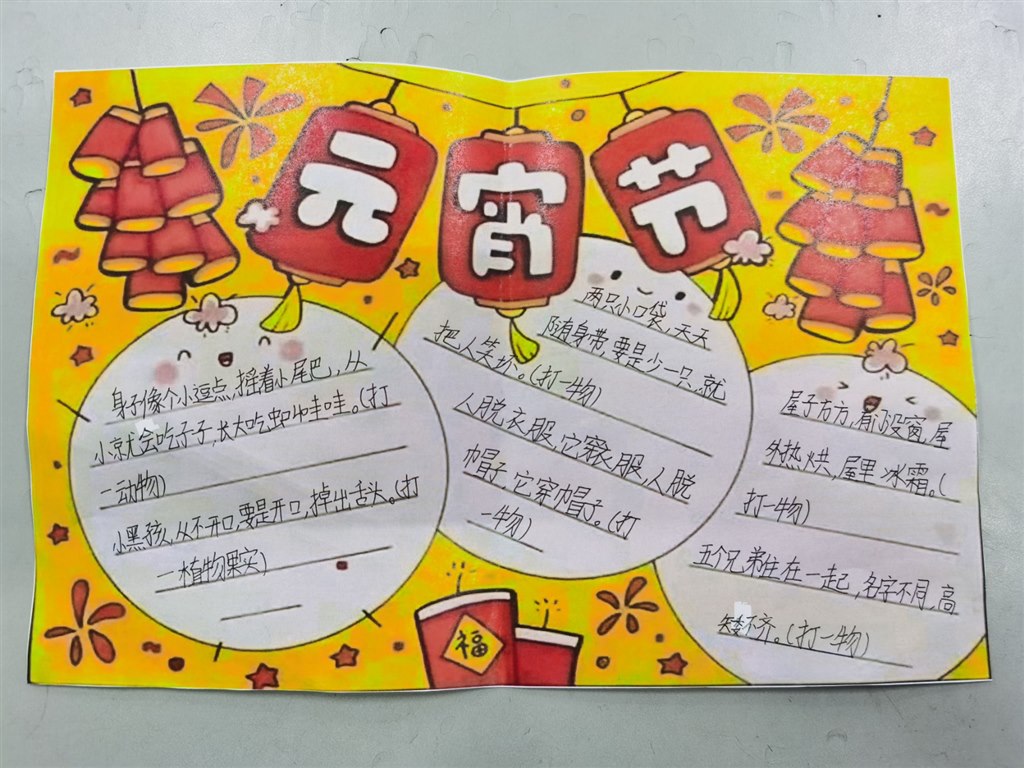 元宵节
身子像个小逗点,摇着小尾巴,从
小就会吃孑孓,长大吃虫叫哇哇。(打
一动物)
小黑孩,从不开口,要是开口,掉出舌头。(打
一植物果实)
两只小口袋,天天
随身带,要是少一只,就
把人笑坏。(打一物)
人脱衣服,它穿衣服,人脱
帽子,它穿帽子。(打
一物)
屋子方方,有门没窗,屋
外热烘,屋里冰霜。(
打一物)
五个兄弟住在一起,名字不同,高
矮不齐。(打一物)
福